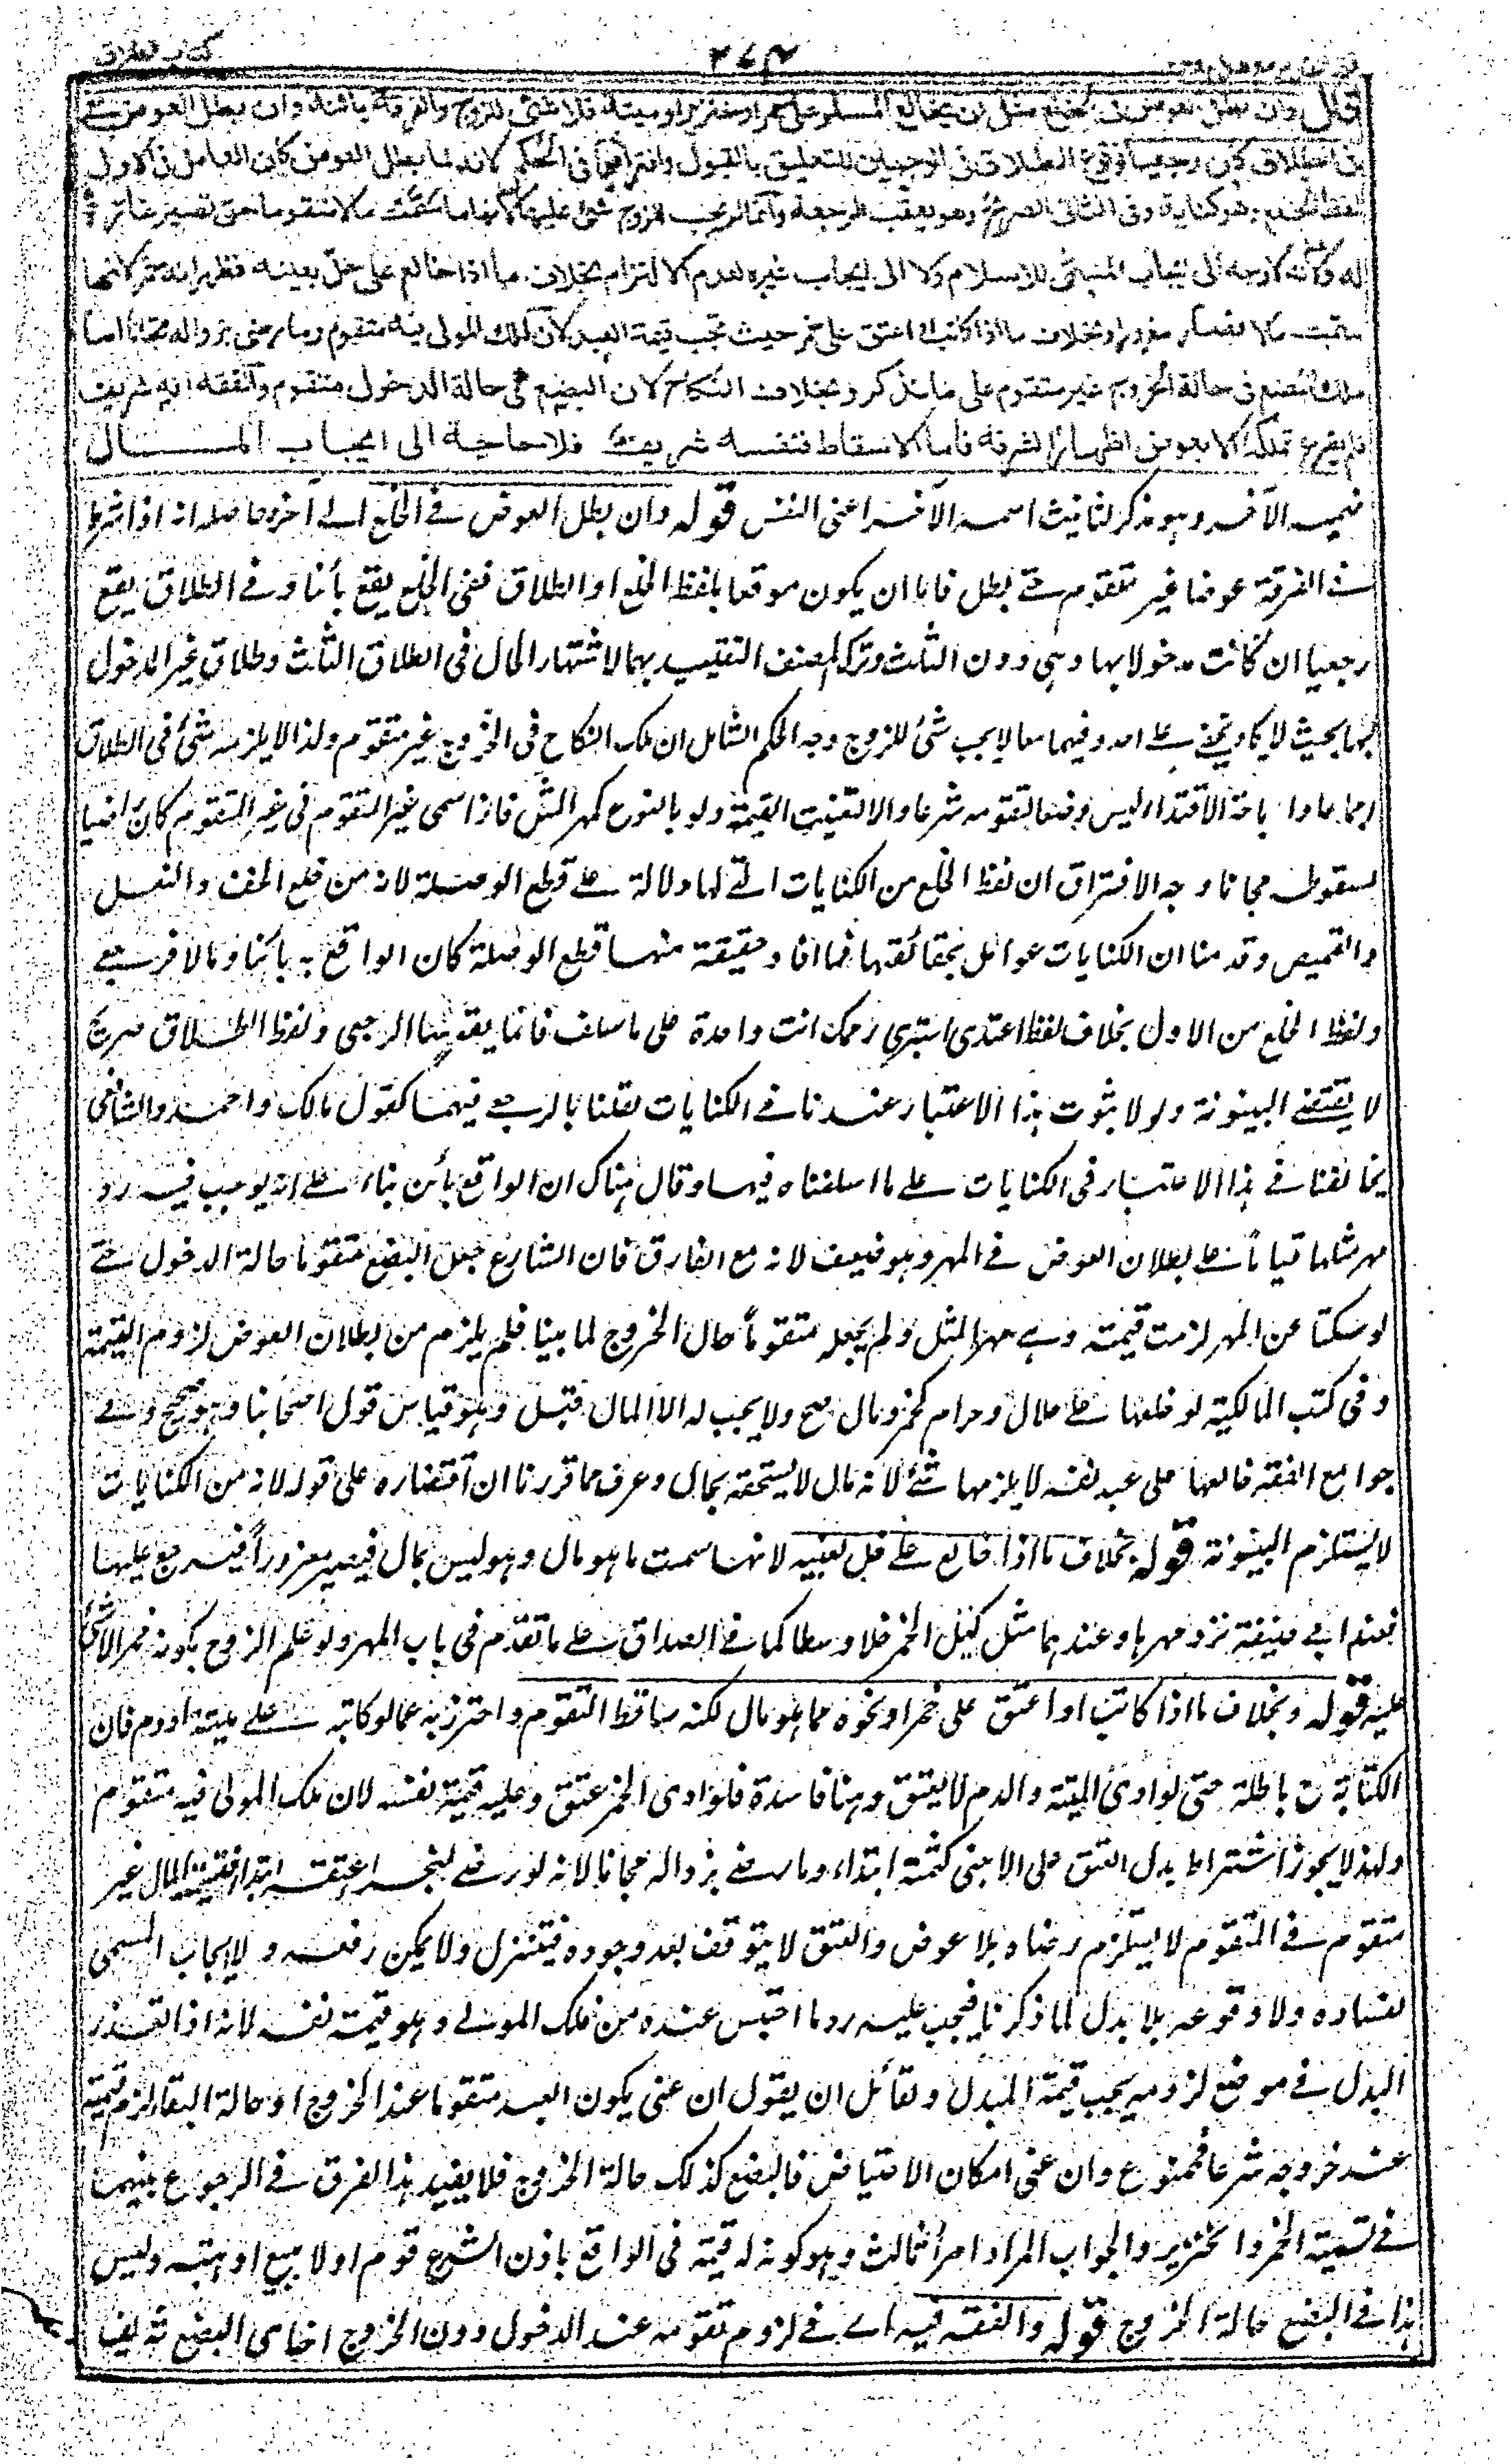 كتاب الطلاق
٢٧٤
قال وان بطل العوض فى الخلع مثل ان يخالع المسلم على خمر او خنزير او ميتة فلا شئ للزوج والفرقة بائنة وان بطل العوض فے
فى الطلاق كان رجعيا فوقوع الطلاق فى الوجهين للتعليق بالقبول وافتراقهما فى الحكم لانه لما بطل العوض كان العامل فى الاول
لفظ الخلع وهو كناية وفى الثانى الصريح وهو يعقب الرجعة وانما لم يجب للزوج شئ عليها لانها ما سمت مالا متقوما حتى تصير غارة
له ولانه لا وجه الى ايجاب المسمى للاسلام ولا الى ايجاب غيره لعدم الالتزام بخلاف ما اذا خالع على خل بعينه فظهر انه خمر لانها
سمت مالا فصار مغرورا وبخلاف ما اذا كاتب او اعتق على خمر حيث تجب قيمة العبد لان ملك المولى فيه متقوم وما رضى بزواله مجانا اما
ملك البضع فى حالة الخروج غير متقوم على ما نذكر وبخلاف النكاح لان البضع فى حالة الدخول متقوم والفقه انه شريف
فلم يشرع تملكه الا بعوض اظهارا لشرفه فاما الاسقاط فنفسه شريف فلا حاجة الى ايجاب المـــال
ضميره الآخر وهو مذكر لتانيث اسمه الآخر اعنى النفس قوله وان بطل العوض فے الخلع الے آخره حاصله انه اذا شرط
فے الفرقة عوضا غير متقوم حتے بطل فاما ان يكون موقعا بلفظ الخلع او الطلاق ففى الخلع يقع بائنا وفے الطلاق يقع
رجعيا ان كانت مدخولا بها وہى دون الثلث وترك المصنف التقييد بهما لاشتهار الحال فى الطلاق الثلث وطلاق غير المدخول
بها بحيث لا يكاد يخفے علے احد وفيهما معا لا يجب شئ للزوج وجه الحكم الشامل ان ملك النكاح فى الخروج غير متقوم ولذا لا يلزمه شئ فى الطلاق
اجماعا و اباحة الافتداء ليس وضعا لتقومه شرعا والا لتعينت القيمة ولو بالنوع كمهر المثل فاذا سمى غير المتقوم فى غير المتقوم كان راضيا
بسقوطه مجانا وجه الافتراق ان لفظ الخلع من الكنايات التے لها دلالة علے قطع الوصلة لانه من خلع الخف والنعـل
والقميص وقد منا ان الكنايات عوامل بحقائقها فما افاد حقيقة منها قطع الوصلة كان الواقع به بائنا وما لا فرجعے
ولفظ الخلع من الاول بخلاف لفظ اعتدى استبرى رحمك انت واحدة على ما سلف فانما يقع بها الرجعى ولفظ الطلاق صريح
لا يقتضے البينونة ولولا ثبوت هذا الاعتبار عندنا فے الكنايات لقلنا بالرجعے فيهما كقول مالك واحمد والشافعى
يخالفنا فے هذا الاعتبار فى الكنايات علے ما اسلفناه فيها وقال ہناك ان الواقع بائن بناء علے انه يوجب فيه رد
مهر مثلها قياسا علے بطلان العوض فے المهر وهو ضعيف لانه مع الفارق فان الشارع جعل البضع متقوما حالة الدخول حتے
لو سكتا عن المهر لزمت قيمته وہے مهر المثل ولم يجعله متقوما حال الخروج لما بينا فلم يلزم من بطلان العوض لزوم القيمة
وفى كتب المالكية لو خلعها علے حلال وحرام كخمر ومال صح ولا يجب له الا المال قيل وهو قياس قول اصحابنا وهو صحيح وفے
جوامع الفقه خالعها على عبد نفسه لا يلزمها شئ لانه مال لا يستحقه بحال وعرف مما قررنا ان اقتصاره على قوله لانه من الكنايات
لا يستلزم البينونة قوله بخلاف ما اذا خالع علے خل بعينه لانها سمت ما هو مال وهو ليس بمال فيصير مغرورا فيرجع عليها
فعند ابى حنيفة ترد مهرها وعندهما مثل كيل الخمر خلا وسطا كما فے الصداق علے ما تقدم فى باب المهر ولو علم الزوج بكونه خمرا لا شئ
عليه قوله وبخلاف ما اذا كاتب او اعتق على خمر او نحوه مما هو مال لكنه ساقط التقوم واحترز به عما لو كاتبه علے ميتة او دم فان
الكتابة ح باطلة حتى لو ادى الميتة والدم لا يعتق وهنا فاسدة فلو ادى الخمر عتق وعليه قيمة نفسه لان ملك المولى فيه متقوم
ولهذا لا يجوز اشتراط بدل العتق على الاجنبى كثمنه ابتداء وما رضے بزواله مجانا لانه لو رضے لنجز اعتقه ابتداء فتسمية المال غير
متقوم فے المتقوم لا يستلزم رضاه بلا عوض والعتق لا يتوقف بعد وجوده فيتنزل ولا يمكن رفعه ولا يجاب المسمى
لفساده ولا وقوعه بلا بدل لما ذكرنا فيجب عليه رد ما احتبس عنده من ملك المولے وهو قيمة نفسه لانه اذا تعذر
البدل فے موضع لزومه يجب قيمة المبدل ولقائل ان يقول ان عنى يكون العبد متقوما عند الخروج او حالة البقاء لزم قيمته
عند خروجه شرعا فممنوع وان عنى امكان الاعتياض فالبضع كذلك حالة الخروج فلا يفيد هذا الفرق فے الرجوع بينهما
فے تسمية الخمر والخنزير والجواب المراد امر ثالث وهو كونه له قيمة فى الواقع باذن الشرع قوم اولا ببيع او هبة وليس
هذا فے البضع حالة الخروج قوله والفقه فيه اے فے لزوم تقومه عند الدخول دون الخروج اخا سى البضع شريف